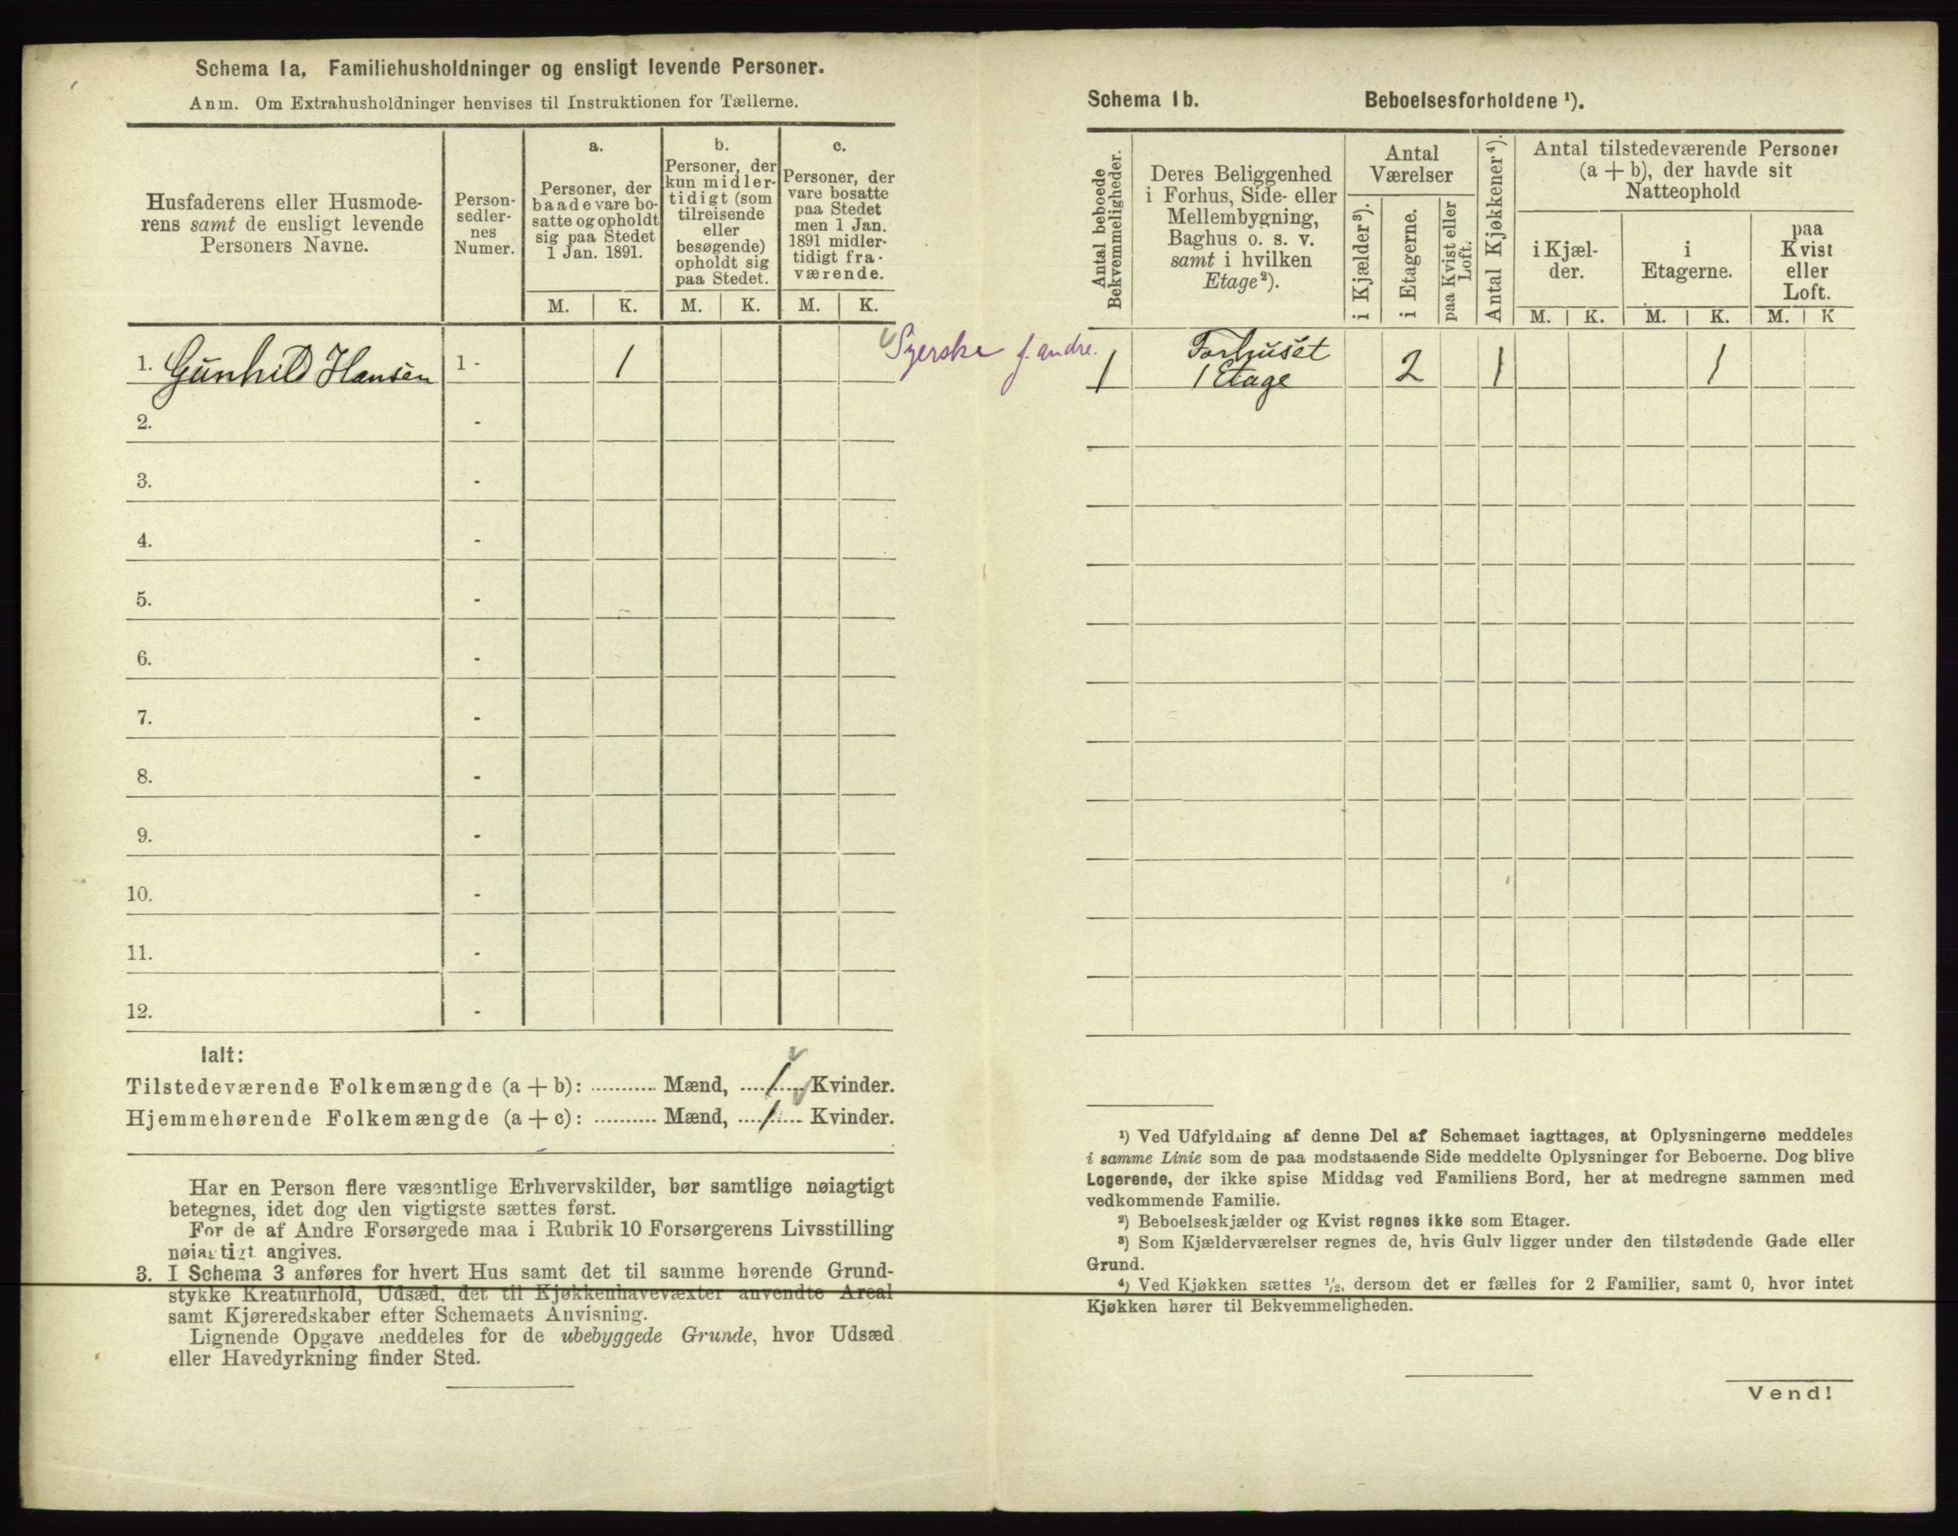 Schema 1a, Familiehusholdninger og ensligt levende Personer.
Anm. Om Extrahusholdninger henvises til Instruktionen for Tællerne.
Husfaderens eller Husmode-
rens samt de ensligt levende
Personers Navne.
Person-
sedler-
nes
Numer.
a.
Personer, der
baade vare bo-
satte og opholdt
sig paa Stedet
1 Jan. 1891.
b.
Personer, der
kun midler-
tidigt (som
tilreisende
eller
besøgende)
opholdt sig
paa Stedet.
c.
Personer, der
vare bosatte
paa Stedet
men 1 Jan.
1891 midler-
tidigt fra-
værende.
M. K. M. K. M. K.
1. Gunhild Hansen 1 - 1
Syerske f. andre.
2. -
3. -
4. -
5. -
6. -
7. -
8. -
9. -
10. -
11. -
12. -
Ialt:
Tilstedeværende Folkemængde (a + b): ........... Mænd, ....1.... Kvinder.
Hjemmehørende Folkemængde (a + c): ........... Mænd, ....1.... Kvinder.
Har en Person flere væsentlige Erhvervskilder, bør samtlige nøiagtigt
betegnes, idet dog den vigtigste sættes først.
For de af Andre Forsørgede maa i Rubrik 10 Forsørgerens Livsstilling
nøiagtigt angives.
3. I Schema 3 anføres for hvert Hus samt det til samme hørende Grund-
stykke Kreaturhold, Udsæd, det til Kjøkkenhavevæxter anvendte Areal
samt Kjøreredskaber efter Schemaets Anvisning.
Lignende Opgave meddeles for de ubebyggede Grunde, hvor Udsæd
eller Havedyrkning finder Sted.
Schema 1b. Beboelsesforholdene ¹).
Antal beboede
Bekvemmeligheder.
Deres Beliggenhed
i Forhus, Side- eller
Mellembygning,
Baghus o. s. v.
samt i hvilken
Etage²).
Antal
Værelser
i Kjælder³).
i Etagerne.
paa Kvist eller
Loft.
Antal Kjøkkener⁴).
Antal tilstedeværende Personer
(a + b), der havde sit
Natteophold
i Kjæl-
der.
i
Etagerne.
paa
Kvist
eller
Loft.
M. K. M. K. M. K
1 Forhuset
1 Etage 2 1 1
¹) Ved Udfyldning af denne Del af Schemaet iagttages, at Oplysningerne meddeles
i samme Linie som de paa modstaaende Side meddelte Oplysninger for Beboerne. Dog blive
Logerende, der ikke spise Middag ved Familiens Bord, her at medregne sammen med
vedkommende Familie.
²) Beboelseskjælder og Kvist regnes ikke som Etager.
³) Som Kjælderværelser regnes de, hvis Gulv ligger under den tilstødende Gade eller
Grund.
⁴) Ved Kjøkken sættes ½, dersom det er fælles for 2 Familier, samt 0, hvor intet
Kjøkken hører til Bekvemmeligheden.
Vend!